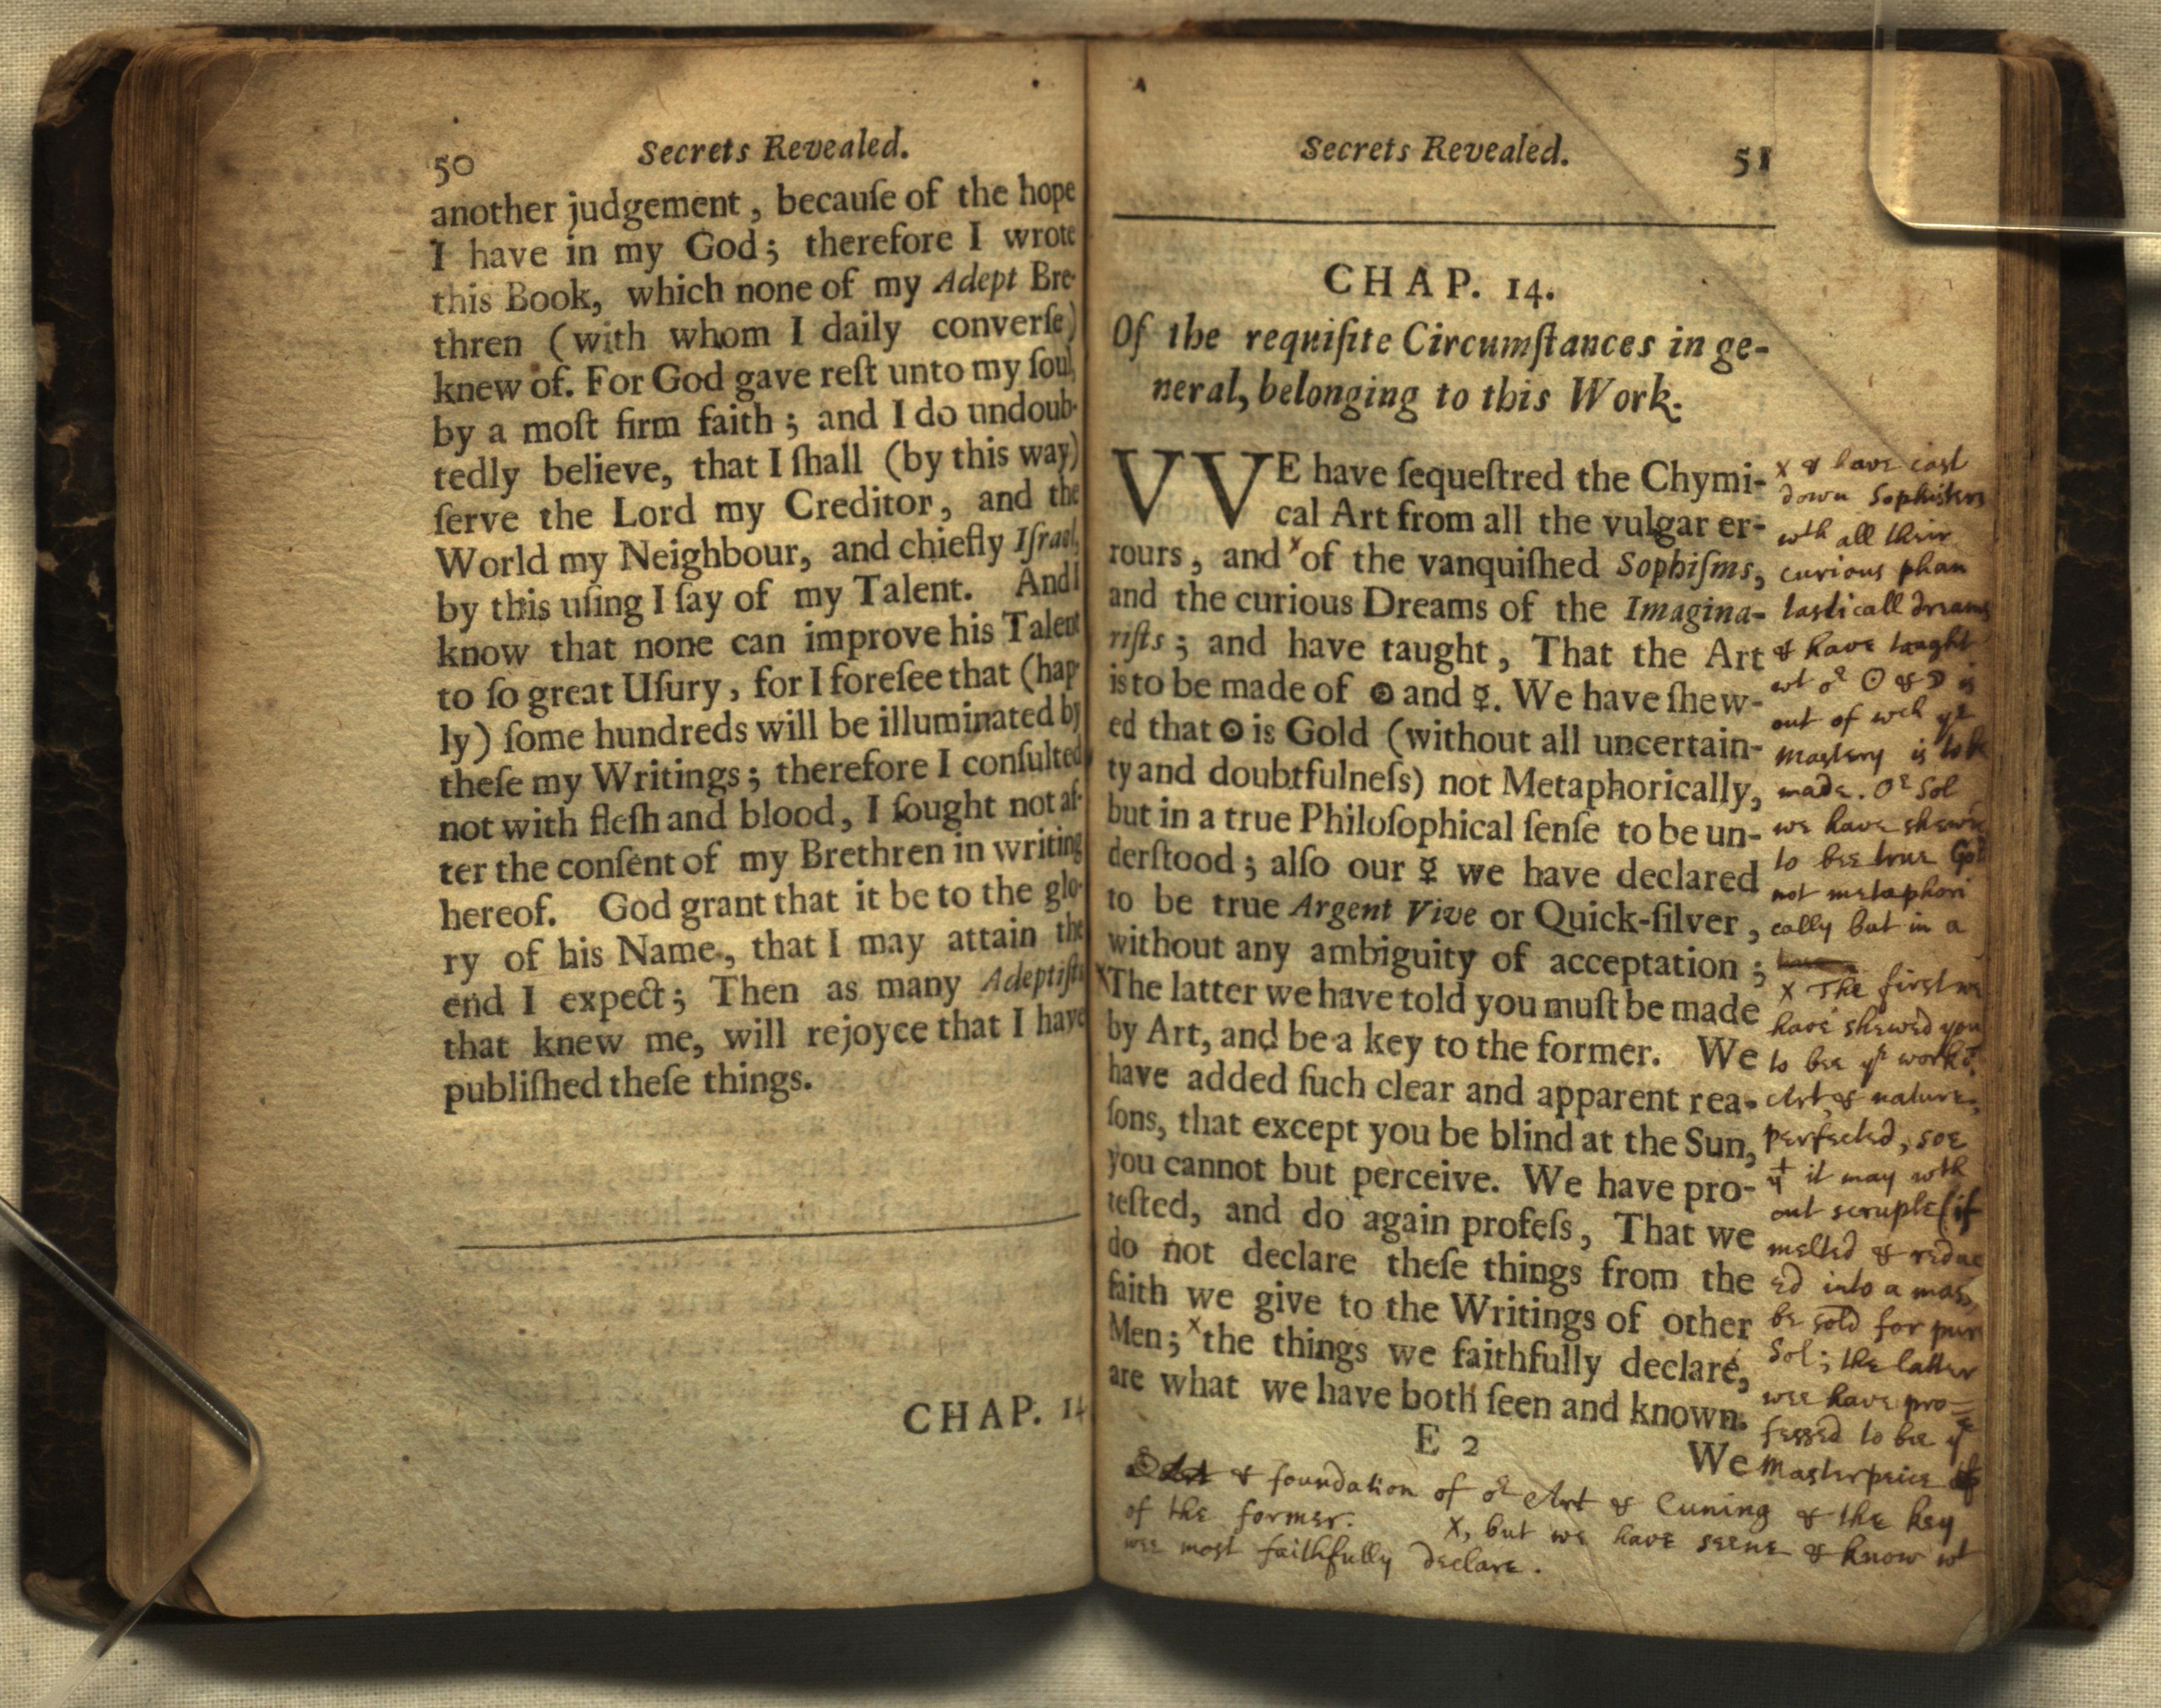 50 Secrets Revealed.
another judgement, becauſe of the hope
I have in my God; therefore I wrote
this Book, which none of my Adept Bre-
thren (with whom I daily converſe)
knew of. For God gave reſt unto my ſoul,
by a moſt firm faith; and I do undoub-
tedly believe, that I ſhall (by this way)
ſerve the Lord my Creditor, and the
World my Neighbour, and chiefly Iſrael,
by this uſing I ſay of my Talent. And I
know that none can improve his Talent
to ſo great Uſury, for I foreſee that (hap-
ly) ſome hundreds will be illuminated by
theſe my Writings; therefore I conſulted
not with fleſh and blood, I ſought not af-
ter the conſent of my Brethren in writing
hereof. God grant that it be to the glo-
ry of his Name, that I may attain the
end I expect; Then as many Adeptiſts
that knew me, will rejoyce that I have
publiſhed theſe things.
CHAP. 14
Secrets Revealed. 51
CHAP. 14.
Of the requiſite Circumſtances in ge-
neral, belonging to this Work.
WE have ſequeſtred the Chymi-
cal Art from all the vulgar er-
rours, and x of the vanquiſhed Sophiſms,
and the curious Dreams of the Imagina-
riſts; and have taught, That the Art
is to be made of ☉ and ☿. We have ſhew-
ed that ☉ is Gold (without all uncertain-
ty and doubtfulneſs) not Metaphorically,
but in a true Philoſophical ſenſe to be un-
derſtood; alſo our ☿ we have declared
to be true Argent Vive or Quick-ſilver,
without any ambiguity of acceptation;
x The latter we have told you muſt be made
by Art, and be a key to the former. We
have added ſuch clear and apparent rea-
ſons, that except you be blind at the Sun,
you cannot but perceive. We have pro-
teſted, and do again profeſs, That we
do not declare theſe things from the
faith we give to the Writings of other
Men; x the things we faithfully declare,
are what we have both ſeen and known.
E 2 We
x & have cast
down Sophisters
wth all their
curious phan
tasticall dreams
& have taught
wt or ☉ & ☽ is
out of wch ye
mastery is to be
made. Or Sol
we have shewn
to bee true Gold
not metaphori
cally but in a
x The first we
have shewed you
to bee ye work of
Art & nature
perfected, soe
yt it may wth
out scruple (if
melted & reduc
ed into a mass
be sold for pure
Sol; the latter
wee have pro=
fessed to bee ye
Masterpeice
& foundation of or Art & Cuning & the key
of the former. x, but we have seene & know wt
wee most faithfully declare.